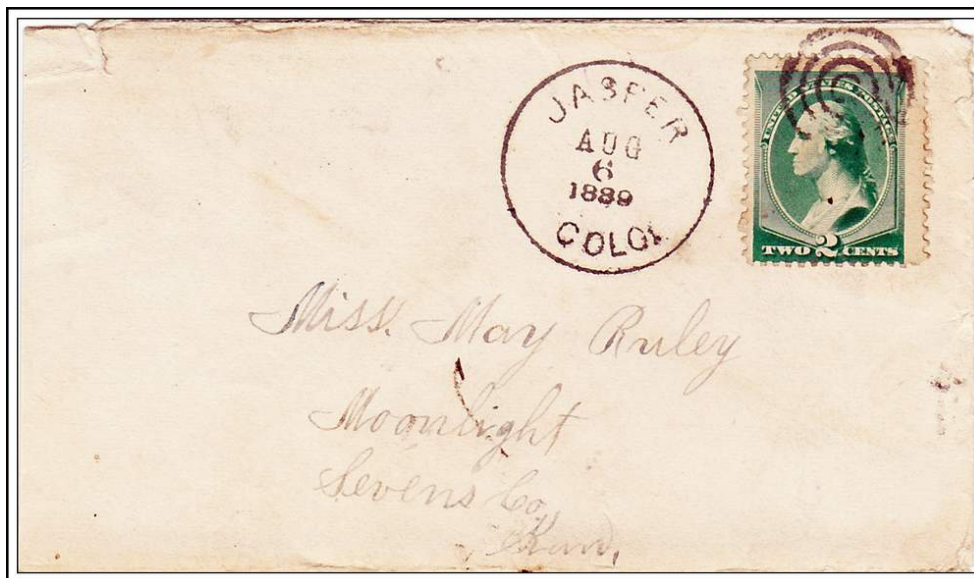 JASPER
AUG
6
1889
COLO.
UNITED STATES POSTAGE
TWO 2 CENTS
Miss. May Ruley
Moonlight
Sevens Co